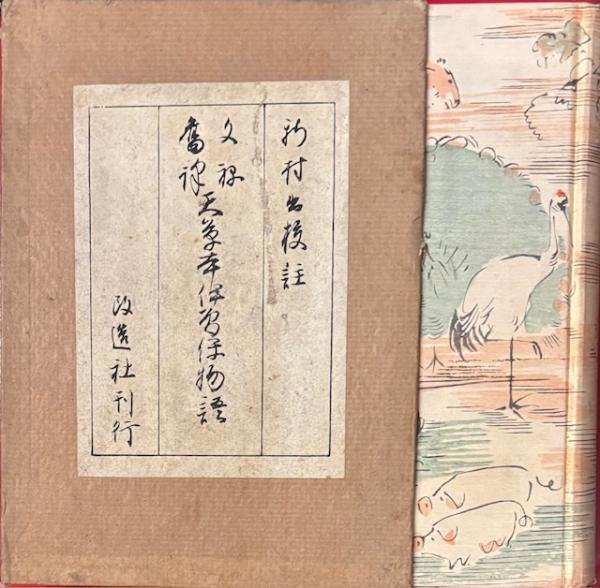 新村出校註
文禄舊譯天草本伊曾保物語
改造社刊行